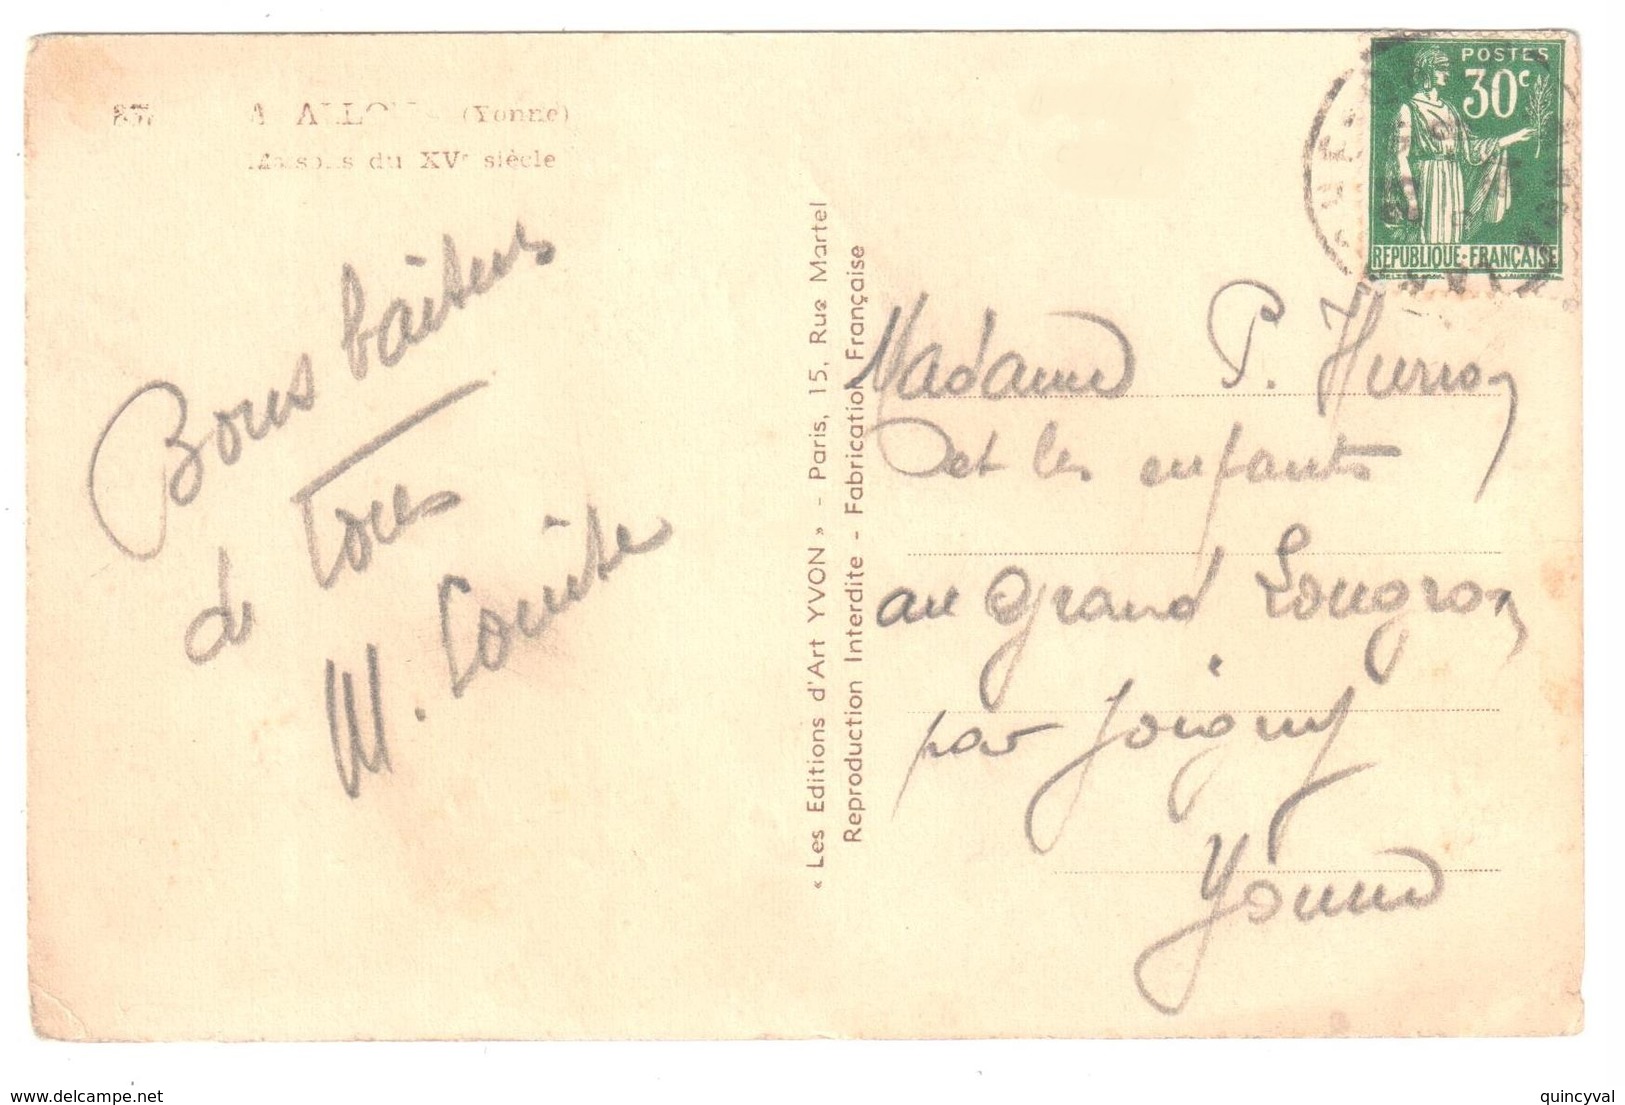 (Yonne)
Maisons du XVe siècle
Bons baisers
de tous
M.
« Les Editions d'Art YVON » - Paris, 15, Rue Martel
Reproduction Interdite - Fabrication Française
POSTES
30c
REPUBLIQUE-FRANÇAISE
Madame P.
et les enfants
au grand Longron
par Joigny
Yonne
delcampe.net
quincyval